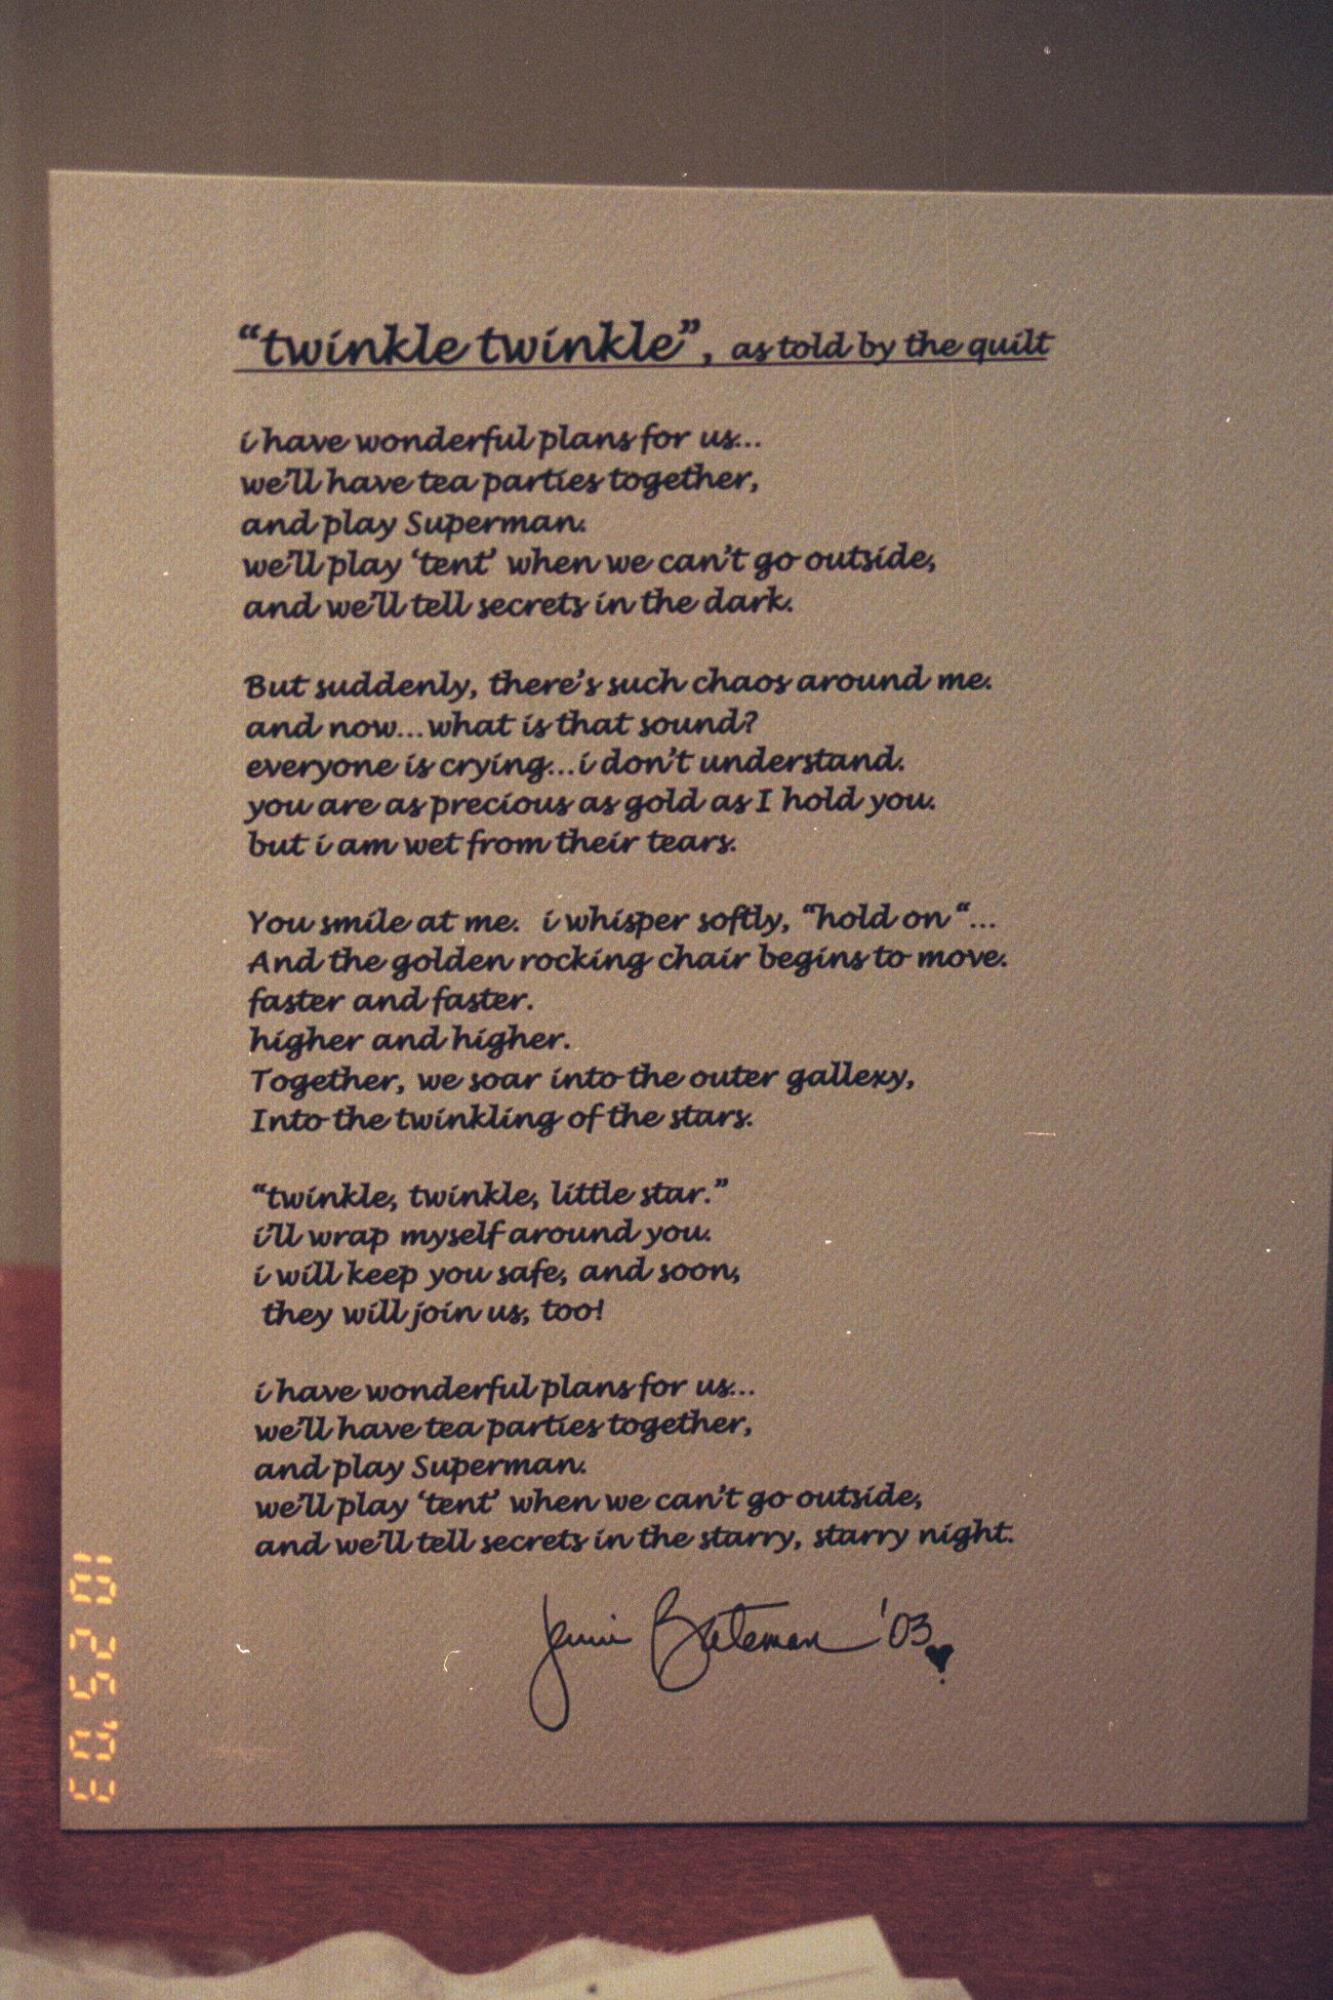 “twinkle twinkle”, as told by the quilt
i have wonderful plans for us...
we'll have tea parties together,
and play Superman.
we'll play ‘tent’ when we can't go outside,
and we'll tell secrets in the dark.
But suddenly, there's such chaos around me.
and now...what is that sound?
everyone is crying...i don't understand.
you are as precious as gold as I hold you.
but i am wet from their tears.
You smile at me.  i whisper softly, “hold on “...
And the golden rocking chair begins to move.
faster and faster.
higher and higher.
Together, we soar into the outer gallexy,
Into the twinkling of the stars.
“twinkle, twinkle, little star.”
i'll wrap myself around you.
i will keep you safe, and soon,
they will join us, too!
i have wonderful plans for us...
we'll have tea parties together,
and play Superman.
we'll play ‘tent’ when we can't go outside,
and we'll tell secrets in the starry, starry night.
Bateman '03
10 25 '03